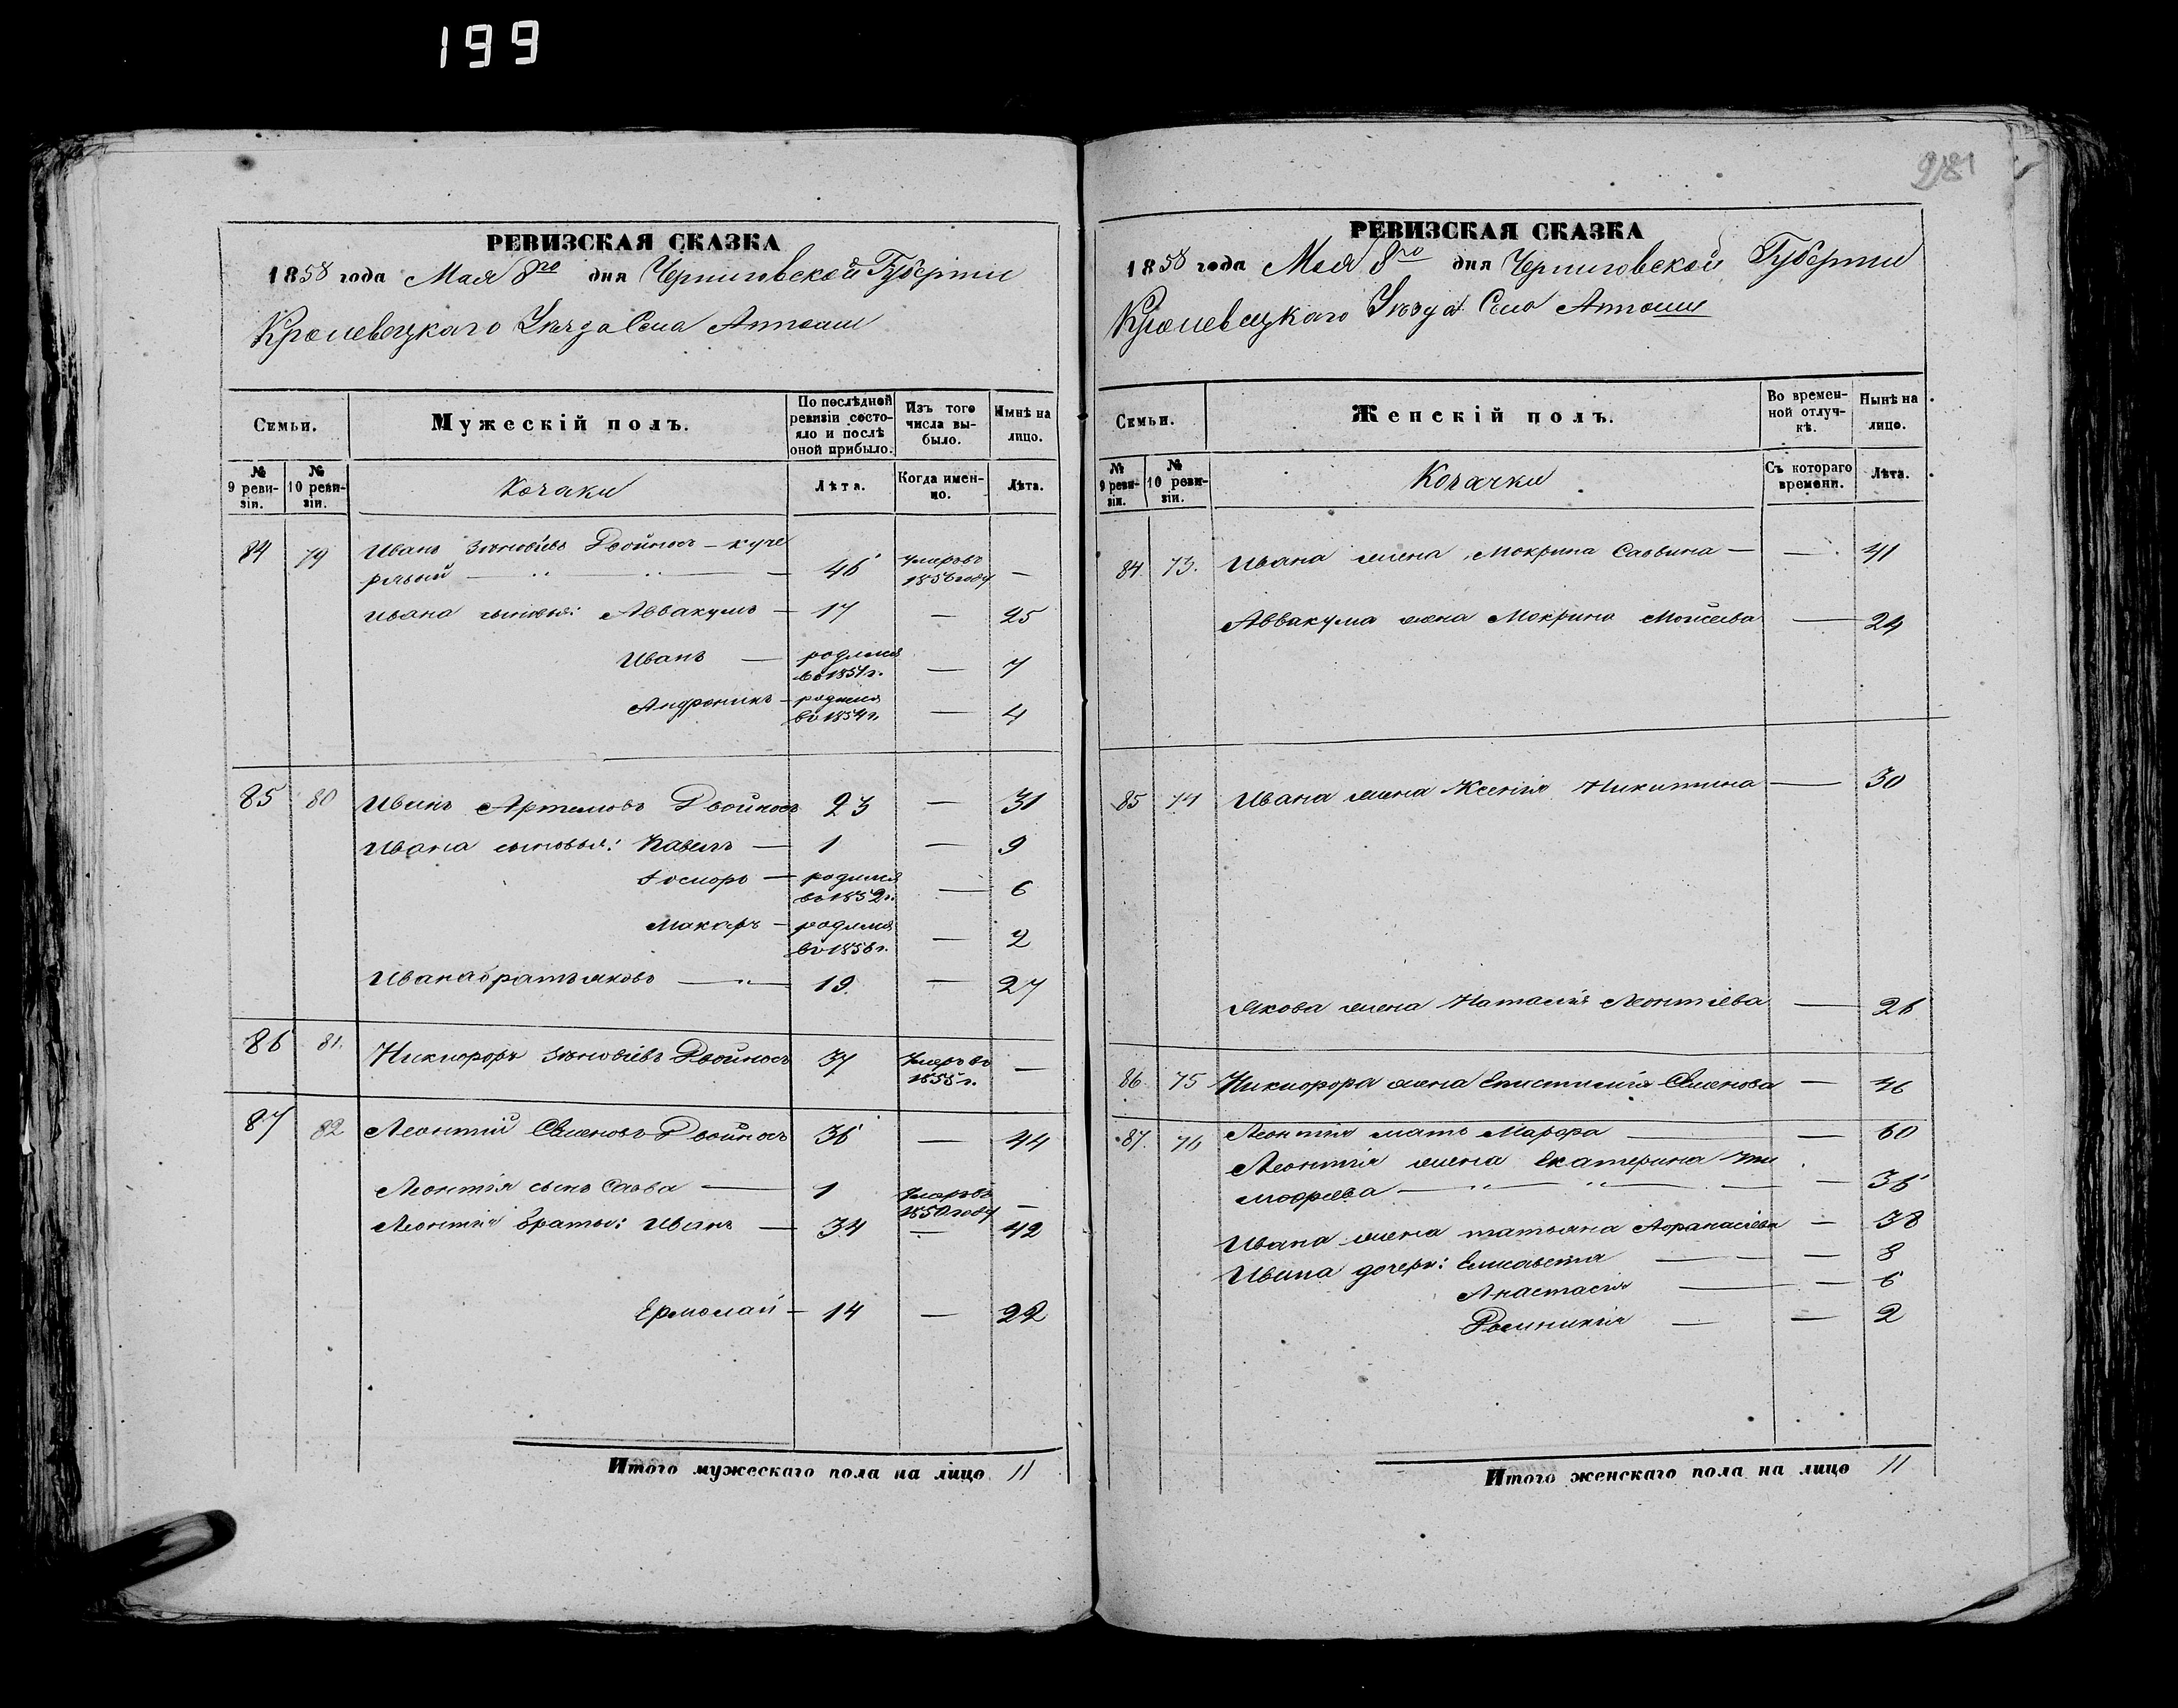 199
281
РЕВИЗСКАЯ СКАЗКА
1858 года Мая 8го дня Черниговской Губерніи
Кролевецкаго Уѣзда Села
Семьи.
Мужескій полъ.
По послѣдней ревизіи состояло и послѣ оной прибыло.
Изъ того числа выбыло.
Нынѣ на лицо.
№ 9 ревизіи.
№ 10 ревизіи.
Козаки
Лѣта.
Когда именно.
Лѣта.
84 79 Иванъ Зѣновіевъ Двойносъ — куче
рявый — 46 Умеръ въ 1856 году —
Ивана сыновья: Аввакумъ — 17 — 25
Иванъ — родился въ 1851 г. — 7
Андроникъ — родился въ 1854 г. — 4
85 80 Иванъ Артемовъ Двойносъ 23 — 31
Ивана сыновья: Павелъ — 1 — 9
Ѳедоръ — родился въ 1852 г. — 6
Макаръ — родился въ 1856 г. — 2
Ивана братъ Яковъ — 19. — 27
86 81. Никифоръ Зѣновіевъ Двойносъ 37 Умеръ въ 1855 г. —
87 82 Леонтій Семеновъ Двойносъ 36 — 44
Леонтія сынъ Савва — 1 Умеръ въ 1850 году —
Леонтія братья: Иванъ — 34 — 42
Ермолай — 14 — 22
Итого мужескаго пола на лицо 11
РЕВИЗСКАЯ СКАЗКА
1858 года Мая 8го дня Черниговской Губерніи
Кролевецкаго Уѣзда Села
Семьи.
Женскій полъ.
Во временной отлучкѣ.
Нынѣ на лицо.
№ 9 ревизіи.
№ 10 ревизіи.
Козачки
Съ котораго времени.
Лѣта.
84. 73. Ивана жена Мокрина Саввина — — 41
Аввакума жена Мокрина Моисеева — 24
85 74 Ивана жена Ксенія Никитина — 30
Якова жена Наталія Леонтіева — 26
86. 75 Никифора жена Епистимія Семенова — 46
87. 76 Леонтія мать Марфа — — 60
Леонтія жена Екатерина Ти
мофеева — — 36
Ивана жена Татьяна Афанасіева — 38
Ивана дочери: Елисавета — — 8
Анастасія — — 6
Домникія — — 2
Итого женскаго пола на лицо 11